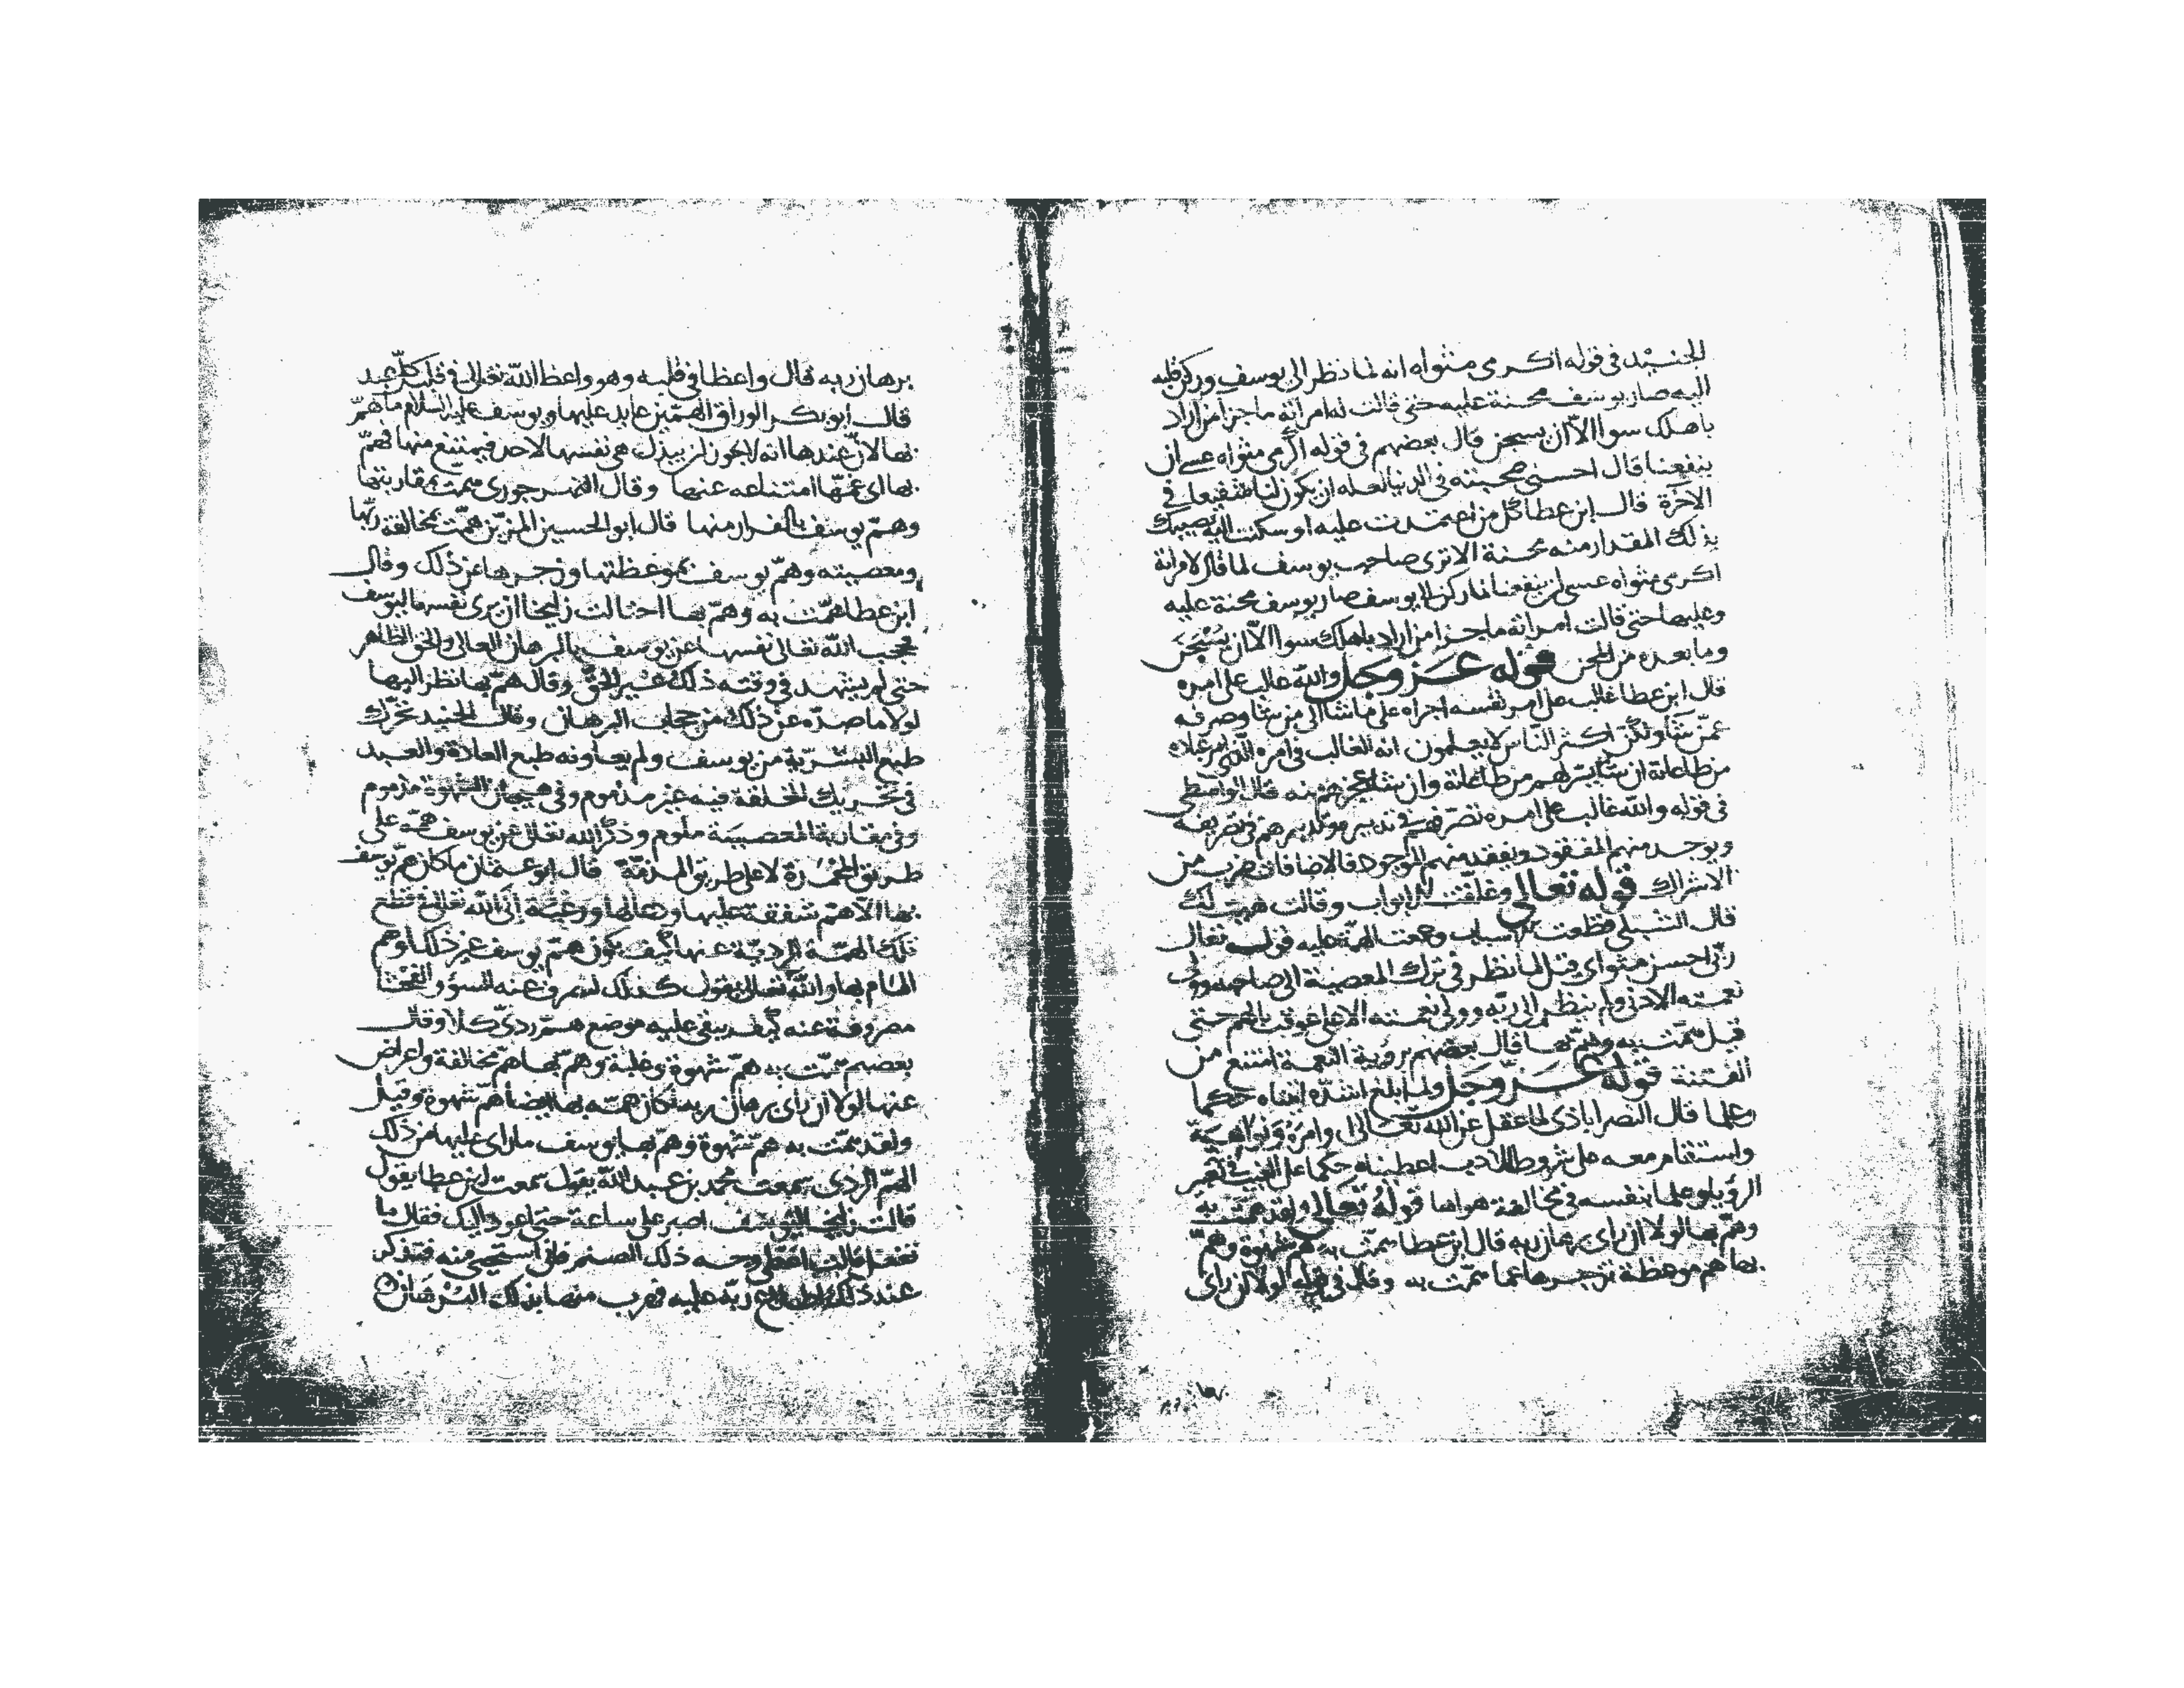 الجنيد في قوله اكرمي مثواه انه لما نظر الى يوسف وركن قلبه
اليه صار يوسف محنة عليه حتى قالت له امراته ما جزا من اراد
باهلك سوا الا ان يسجن قال بعضهم في قوله اكرمي مثواه عسى ان
ينفعنا قال احسني صحبته في الدنيا لعله ان يكون لنا شفيعا في
الاخرة قال ابن عطا كل من اعتمدت عليه او سكنت اليه يصيبك
بذلك المقدار منه محنة الا ترى صاحب يوسف لما قال لامراته
اكرمي مثواه عسى ان ينفعنا فاركن الى يوسف صار يوسف محنة عليه
وعليها حتى قالت امراته ما جزا من اراد باهلك سوا الا ان يسجن
وما بعده من المحن قوله عز وجل والله غالب على امره
قال ابن عطا غالب على امر نفسه اجراه على ما شا الى من شا وصرفه
عمن شا ولكن اكثر الناس لا يعلمون انه الغالب في امره
من طاعاته ان شا يسرهم من طاعاته وان شا اعجزهم منه قال الواسطي
في قوله والله غالب على امره تصرفهم في تدبير مولد تدبيرهم في تصريفه
ويوجد منهم المفقود ويفقد منهم الموجود فالاضافات ضرب من
الاشراك قوله تعالى وغلقت الابواب وقالت هيت لك
قال الشبلي قطعت الاسباب وجمعت الهمة عليه قوله تعالى
ربي احسن مثواي قيل لما نظر في ترك المعصية الى صاحبه وولي
نعمته الادنى ولم ينظر الى ربه وولي نعمته الاعلى عوقب بالهم حتى
قيل همت به وهم بها قال بعضهم برؤية النعمة امتنع من
الفتنة قوله عز وجل ولما بلغ اشده اتيناه حكما
وعلما قال النصراباذي لما عقل عن الله تعالى وامره ونواهيه
واستقام معه على شروط الادب اعطيناه حكما على الغيب في تعبير
الرؤيا وعلما بنفسه في مخالفة هواها قوله تعالى ولقد همت به
وهم بها لولا ان راى برهان ربه قال ابن عطا همت به هم شهوة وهم
بها هم موعظة تزجرها عما همت به وقال في قوله لولا ان راى
برهان ربه قال واعظا في قلبه وهو واعظ الله تعالى في قلب كل عبد
قال ابو بكر الوراق الهمين عايد عليها ويوسف عليه السلام ما هم
بها لان عندها انه لا يجوز ان يبذل هي نفسها لاحد فيمتنع منها فهم
بها اي غمها امتناعه عنها وقال النهرجوري همت بمقاربتها
وهم يوسف بالفرار منها قال ابو الحسين المزين همت بمخالفة ربها
ومعصيته وهم يوسف بموعظتها وزجرها عن ذلك وقال
ابن عطا همت به وهم بها احتالت زليخا ان يرى نفسها ليوسف
فحجب الله تعالى نفسها عن يوسف بالبرهان العالي والحق الظاهر
حتى لم يشهد في وقته ذلك غير الحق وقال هم بها نظر اليها
لولا ما صده عن ذلك من حجاب البرهان وقال الجنيد تحرك
طبع البشرية من يوسف ولم يعاونه طبع العادة والعبد
في تحريك الخلقة فيه غير مذموم وفي هيجان الشهوة مذموم
وفي مقاربة المعصية ملوم وذكر الله تعالى عن يوسف همه على
طريق المحمدة لا على طريق المذمة قال ابو عثمان ما كان هم يوسف
بها الا هم شفقة عليها ودعا لها ورغبة الى الله تعالى في قطع
تلك الهمة الردية عنها كيف يكون هم يوسف غير ذلك او هم
الهام بها والله تعالى يقول كذلك لنصرف عنه السؤ والفحشا
مصروفة عنه كيف يبقى عليه موضع هم ردي كلا وقال
بعضهم همت به هم شهوة وغلبة وهم بها هم مخالفة واعراض
عنها لولا ان راى برهان ربه لكان همته بها ايضا هم شهوة وقيل
ولقد همت به هم شهوة وهم بها يوسف ما راى عليها من ذلك
الهم الردي سمعت محمد بن عبد الله يقول سمعت ابن عطا يقول
قالت زليخا ليوسف اصبر علي ساعة حتى اعود اليك فقال ما
تفعل قالت اغطي وجه ذلك الصنم فاني استحيي منه فتذكر
عند ذلك اطلاع ربه عليه فهرب منها بذلك البرهان